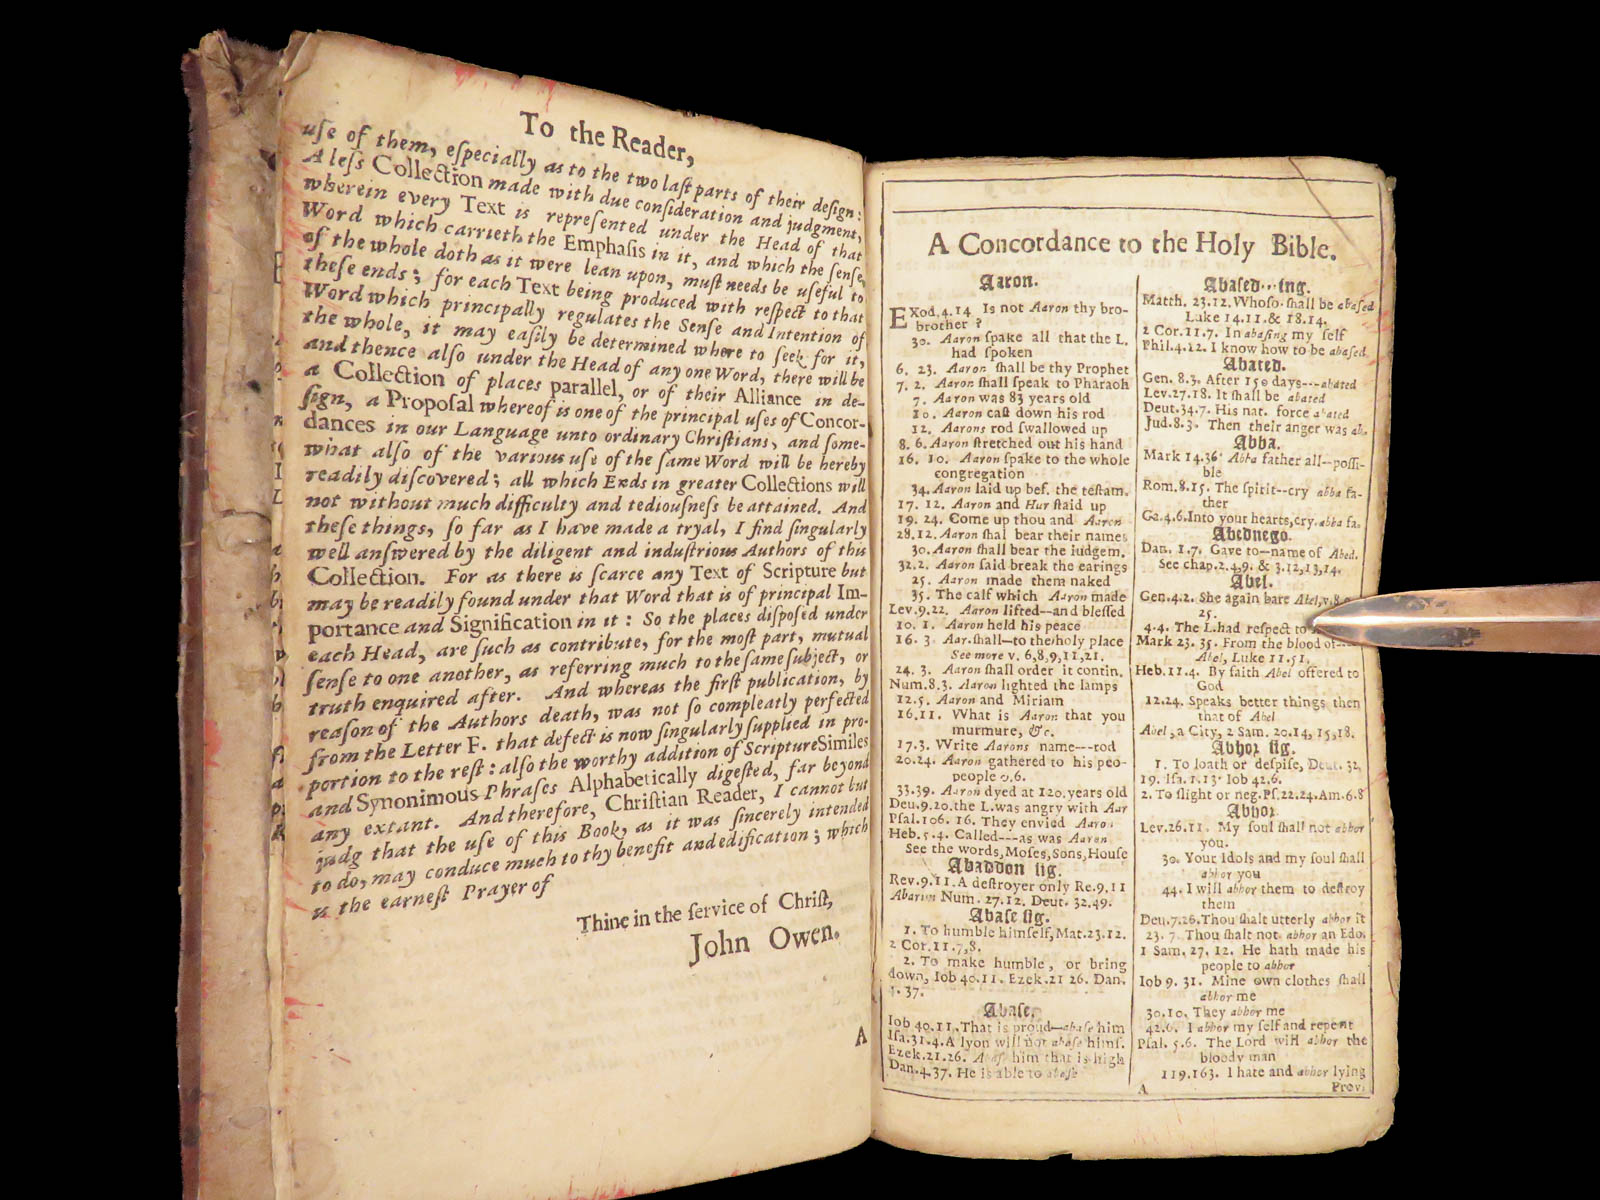 To the Reader,
uſe of them, eſpecially as to the two laſt parts of their deſign:
A leſs Collection made with due conſideration and judgment,
wherein every Text is repreſented under the Head of that
Word which carrieth the Emphaſis in it, and which the ſenſe
of the whole doth as it were lean upon, muſt needs be uſeful to
theſe ends; for each Text being produced with reſpect to that
Word which principally regulates the Senſe and Intention of
the whole, it may eaſily be determined where to ſeek for it,
and thence alſo under the Head of any one Word, there will be
a Collection of places parallel, or of their Alliance in de-
ſign, a Propoſal whereof is one of the principal uſes of Concor-
dances in our Language unto ordinary Chriſtians, and ſome-
what alſo of the various uſe of the ſame Word will be hereby
readily diſcovered; all which Ends in greater Collections will
not without much difficulty and tediouſneſs be attained. And
theſe things, ſo far as I have made a tryal, I find ſingularly
well anſwered by the diligent and induſtrious Authors of this
Collection. For as there is ſcarce any Text of Scripture but
may be readily found under that Word that is of principal Im-
portance and Signification in it: So the places diſpoſed under
each Head, are ſuch as contribute, for the moſt part, mutual
ſenſe to one another, as referring much to the ſame ſubject, or
truth enquired after. And whereas the firſt publication, by
reaſon of the Authors death, was not ſo compleatly perfected
from the Letter F. that defect is now ſingularly ſupplied in pro-
portion to the reſt: alſo the worthy addition of Scripture Similes
and Synonimous Phraſes Alphabetically digeſted, far beyond
any extant. And therefore, Chriſtian Reader, I cannot but
judg that the uſe of this Book, as it was ſincerely intended
to do, may conduce much to thy benefit and edification; which
is the earneſt Prayer of
Thine in the ſervice of Chriſt,
John Owen.
A
A Concordance to the Holy Bible.
Aaron.
EXod. 4.14 Is not Aaron thy bro-
brother?
30. Aaron ſpake all that the L.
had ſpoken
6. 23. Aaron ſhall be thy Prophet
7. 2. Aaron ſhall ſpeak to Pharaoh
7. Aaron was 83 years old
10. Aaron caſt down his rod
12. Aarons rod ſwallowed up
8. 6. Aaron ſtretched out his hand
16. 10. Aaron ſpake to the whole
congregation
34. Aaron laid up bef. the teſtam.
17. 12. Aaron and Hur ſtaid up
19. 24. Come up thou and Aaron
28.12. Aaron ſhal bear their names
30. Aaron ſhall bear the iudgem.
32.2. Aaron ſaid break the earings
25. Aaron made them naked
35. The calf which Aaron made
Lev.9.22. Aaron lifted--and bleſſed
10. 1. Aaron held his peace
16. 3 Aar. ſhall—to the holy place
See more v. 6,8,9,11,21.
24. 3. Aaron ſhall order it contin.
Num.8.3. Aaron lighted the lamps
12.5. Aaron and Miriam
16.11. What is Aaron that you
murmure, &c.
17.3. Write Aarons name---rod
20.24. Aaron gathered to his peo-
people v.6.
33.39. Aaron dyed at 120. years old
Deu.9.20. the L. was angry with Aar
Pſal.106. 16. They envied Aaron
Heb.5.4. Called---as was Aaron
See the words, Moſes, Sons, Houſe
Abaddon ſig.
Rev.9.11. A deſtroyer only Re.9.11
Abarim Num. 27.12. Deut. 32.49.
Abaſe ſig.
1. To humble himſelf, Mat.23.12.
2 Cor.11.7,8.
2. To make humble, or bring
down, Iob 40.11. Ezek.21 26. Dan.
4. 37.
Abaſe.
Iob 40.11. That is proud—abaſe him
Iſa.31.4. A lyon will not abaſe himſ.
Ezek.21.26. Abaſe him that is high
Dan.4.37. He is able to abaſe
Abaſed---ing.
Matth. 23.12. Whoſo ſhall be abaſed
Luke 14.11. & 18.14.
2 Cor.11.7. In abaſing my ſelf
Phil.4.12. I know how to be abaſed.
Abated.
Gen. 8.3. After 150 days---abated
Lev.27.18. It ſhall be abated
Deut.34.7. His nat. force abated
Jud.8.3. Then their anger was ab.
Abba.
Mark 14.36 Abba father all--poſſi-
ble
Rom.8.15. The ſpirit--cry abba fa-
ther
Ga.4.6. Into your hearts, cry. abba fa.
Abednego.
Dan. 1.7. Gave to--name of Abed.
See chap.2.49. & 3.12,13,14.
Abel.
Gen.4.2. She again bare Abel, v.8.
25.
4.4. The L. had reſpect to
Mark 23. 35. From the blood of
Abel, Luke 11.51.
Heb.11.4. By faith Abel offered to
God
12.24. Speaks better things then
that of Abel
Abel, a City, 2 Sam. 20.14,15,18.
Abhor ſig.
1. To loath or deſpiſe, Deut. 32.
19. Iſa.1.13. Iob 42.6.
2. To ſlight or neg. Pſ.22.24. Am.6.8
Abhor
Lev.26.11. My ſoul ſhall not abhor
you.
30. Your Idols and my ſoul ſhall
abhor you
44. I will abhor them to deſtroy
them
Deu.7.26. Thou ſhalt utterly abhor it
23. 7. Thou ſhalt not abhor an Edo.
1 Sam. 27. 12. He hath made his
people to abhor
Iob 9. 31. Mine own clothes ſhall
abhor me
30.10. They abhor me
42.6. I abhor my ſelf and repent
Pſal. 5.6. The Lord will abhor the
bloody man
119.163. I hate and abhor lying
A
Prov.